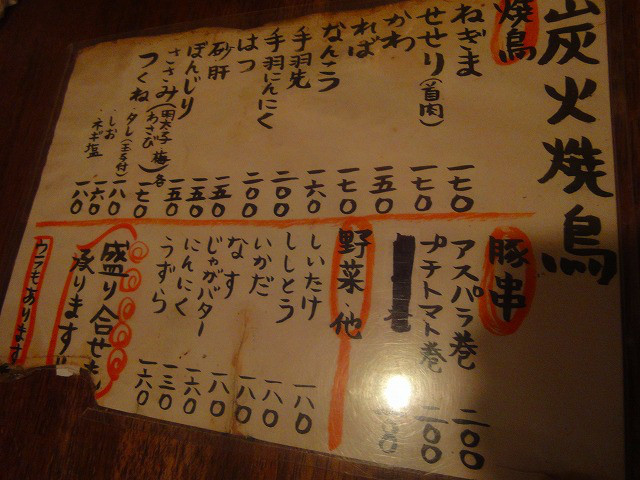 炭火焼鳥
焼鳥
ねぎま 一七〇
せせり(首肉) 一七〇
かわ 一五〇
ればー 一七〇
なんこつ 一六〇
手羽先 二〇〇
手羽にんにく 二〇〇
はつ 一五〇
砂肝 一五〇
ぼんじり 一五〇
ささみ(明太子 梅 わさび)各 一七〇
つくね
・タレ(玉子付) 一八〇
・しお 一六〇
・ネギ塩 一八〇
豚串
アスパラ巻 二〇〇
プチトマト巻 二〇〇
野菜・他
しいたけ 一八〇
ししとう 一八〇
いかだ 一八〇
なす 一八〇
じゃがバター 一六〇
にんにく 一三〇
うずら 一六〇
盛り合せも
承ります!!
ウラもあります